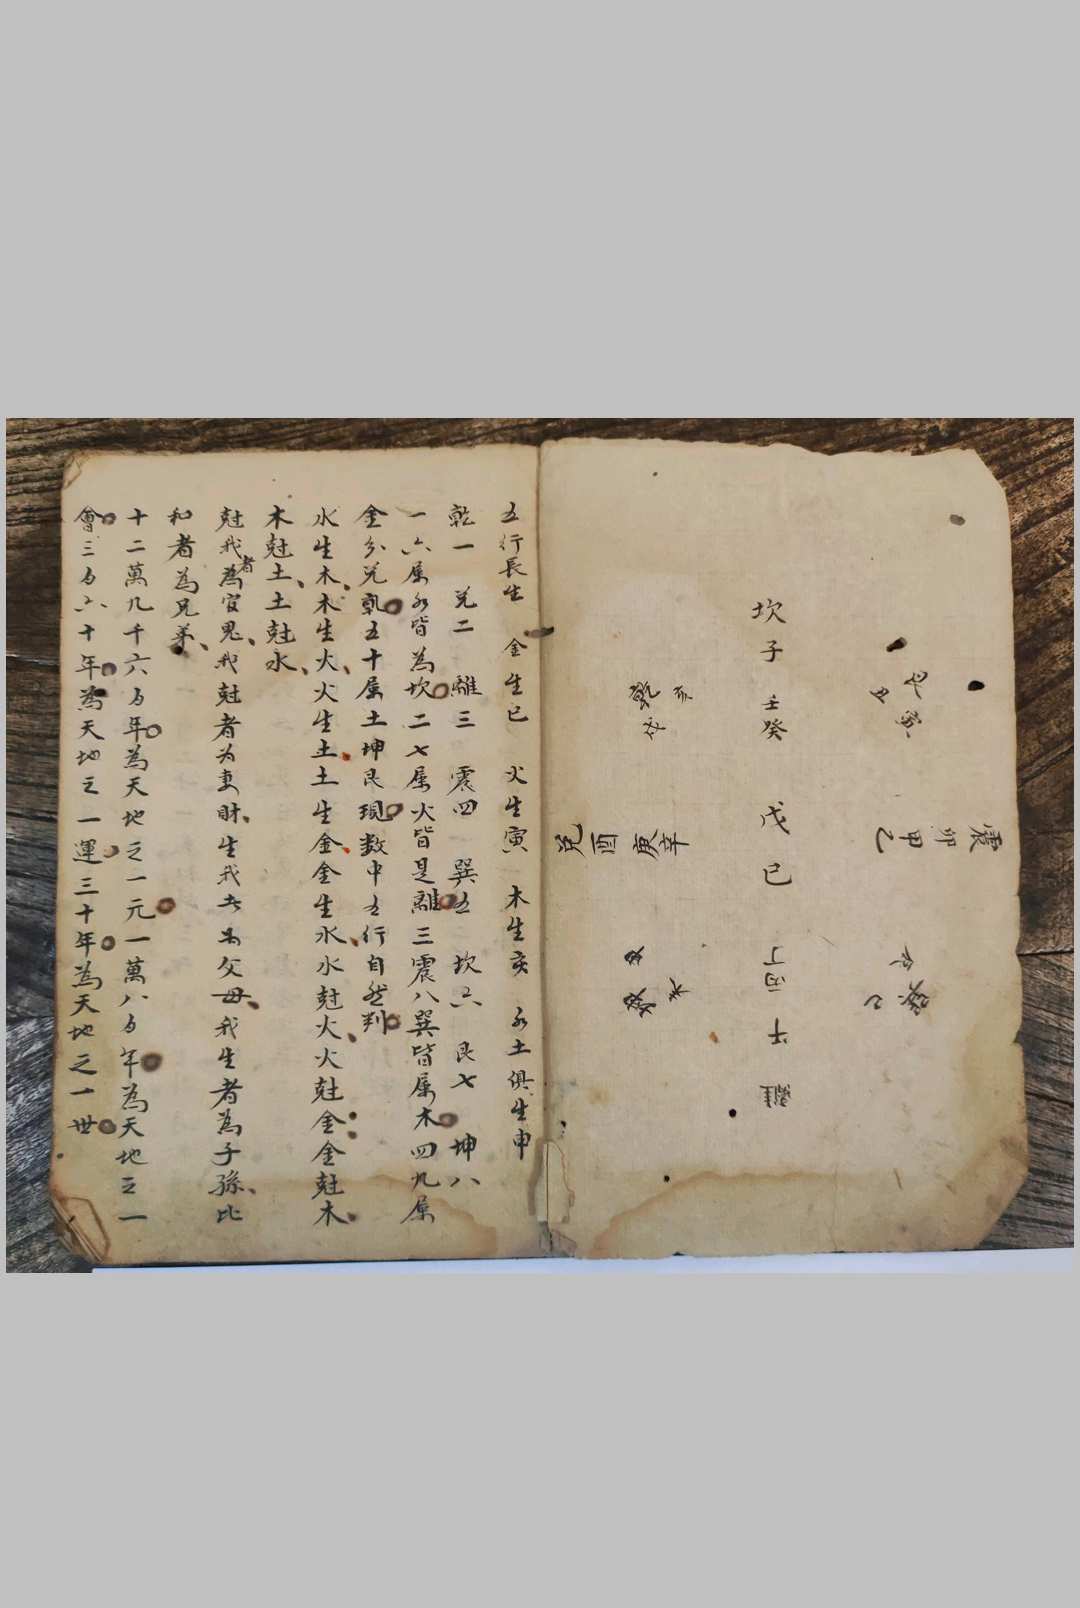 坎子壬癸
戊己
丙丁
午
離
震卯甲乙
兌酉庚辛
乾亥
戌
艮寅
丑
巽
辰
巳
坤
未
五行長生 金生巳 火生寅 木生亥 水土俱生申
乾一 兌二 離三 震四 巽五 坎六 艮七 坤八
一六属水皆為坎二七属火皆是離三震八巽皆属木四九属
金分兌乾五十属土坤艮現數中五行自然判
水生木木生火火生土土生金金生水水尅火火尅金金尅木
木尅土土尅水
尅我者為官鬼我尅者為妻財生我者為父母我生者為子孫比
和者為兄弟
十二萬九千六百年為天地之一元一萬八百年為天地之一
會三百六十年為天地之一運三十年為天地之一世